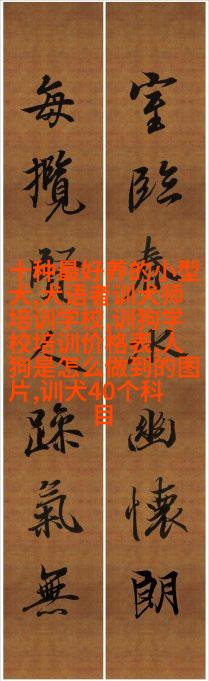 室臨春水幽懷朗
每攬躁氣無
十种最好养的小型
犬,犬语者训犬师
培训学校,训狗学
校培训价格表,人
狗是怎么做到的图
片,训犬40个科
目